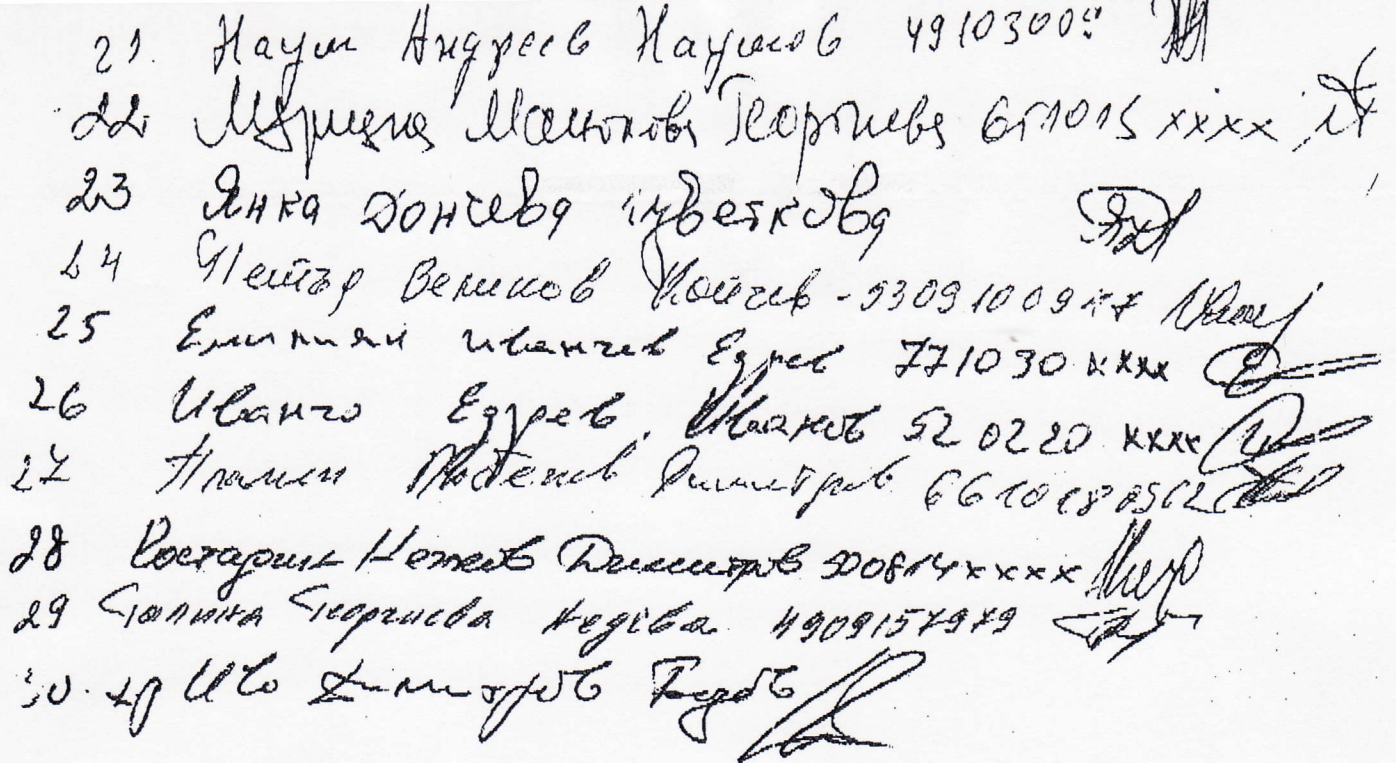 21. Наум Андреев Наумов 4910300
22 Марийка Георгиева 651015 xxxx
23 Янка Дончева Цветкова
24 Петър Великов Койчев - 530910
25 Емилиян Иванчев Едрев 771030 xxxx
26 Иванчо Едрев Иванов 520220 xxxx
27 Пламен Димитров
28 Костадин Нежев Димитров 500814xxxx
29 Галина Георгиева Недева 4909157979
30. Иво Димитров